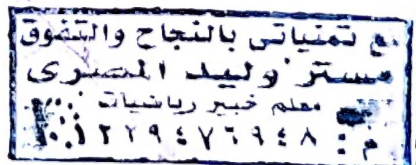 مع تمنياتى بالنجاح والتفوق
مستر وليد المصرى
معلم خبير رياضيات
م: ٠١٠٢٢٩٤٧٦٩٤٨